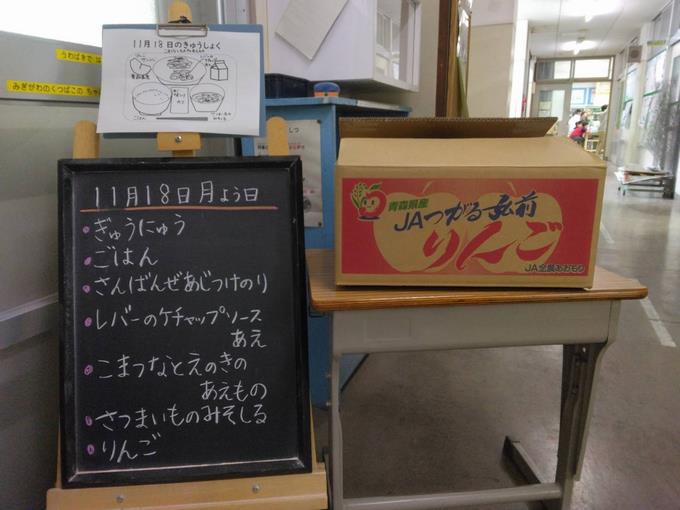 11月18日のきゅうしょく
ごはん
うわばきでは
みぎがわのくつばこの
11月18日月よう日
ぎゅうにゅう
ごはん
さんばんぜあじつけのり
レバーのケチャップソース
あえ
こまつなとえのきの
あえもの
さつまいものみそしる
りんご
青森県産
JAつがる弘前
りんご
JA全農あおもり